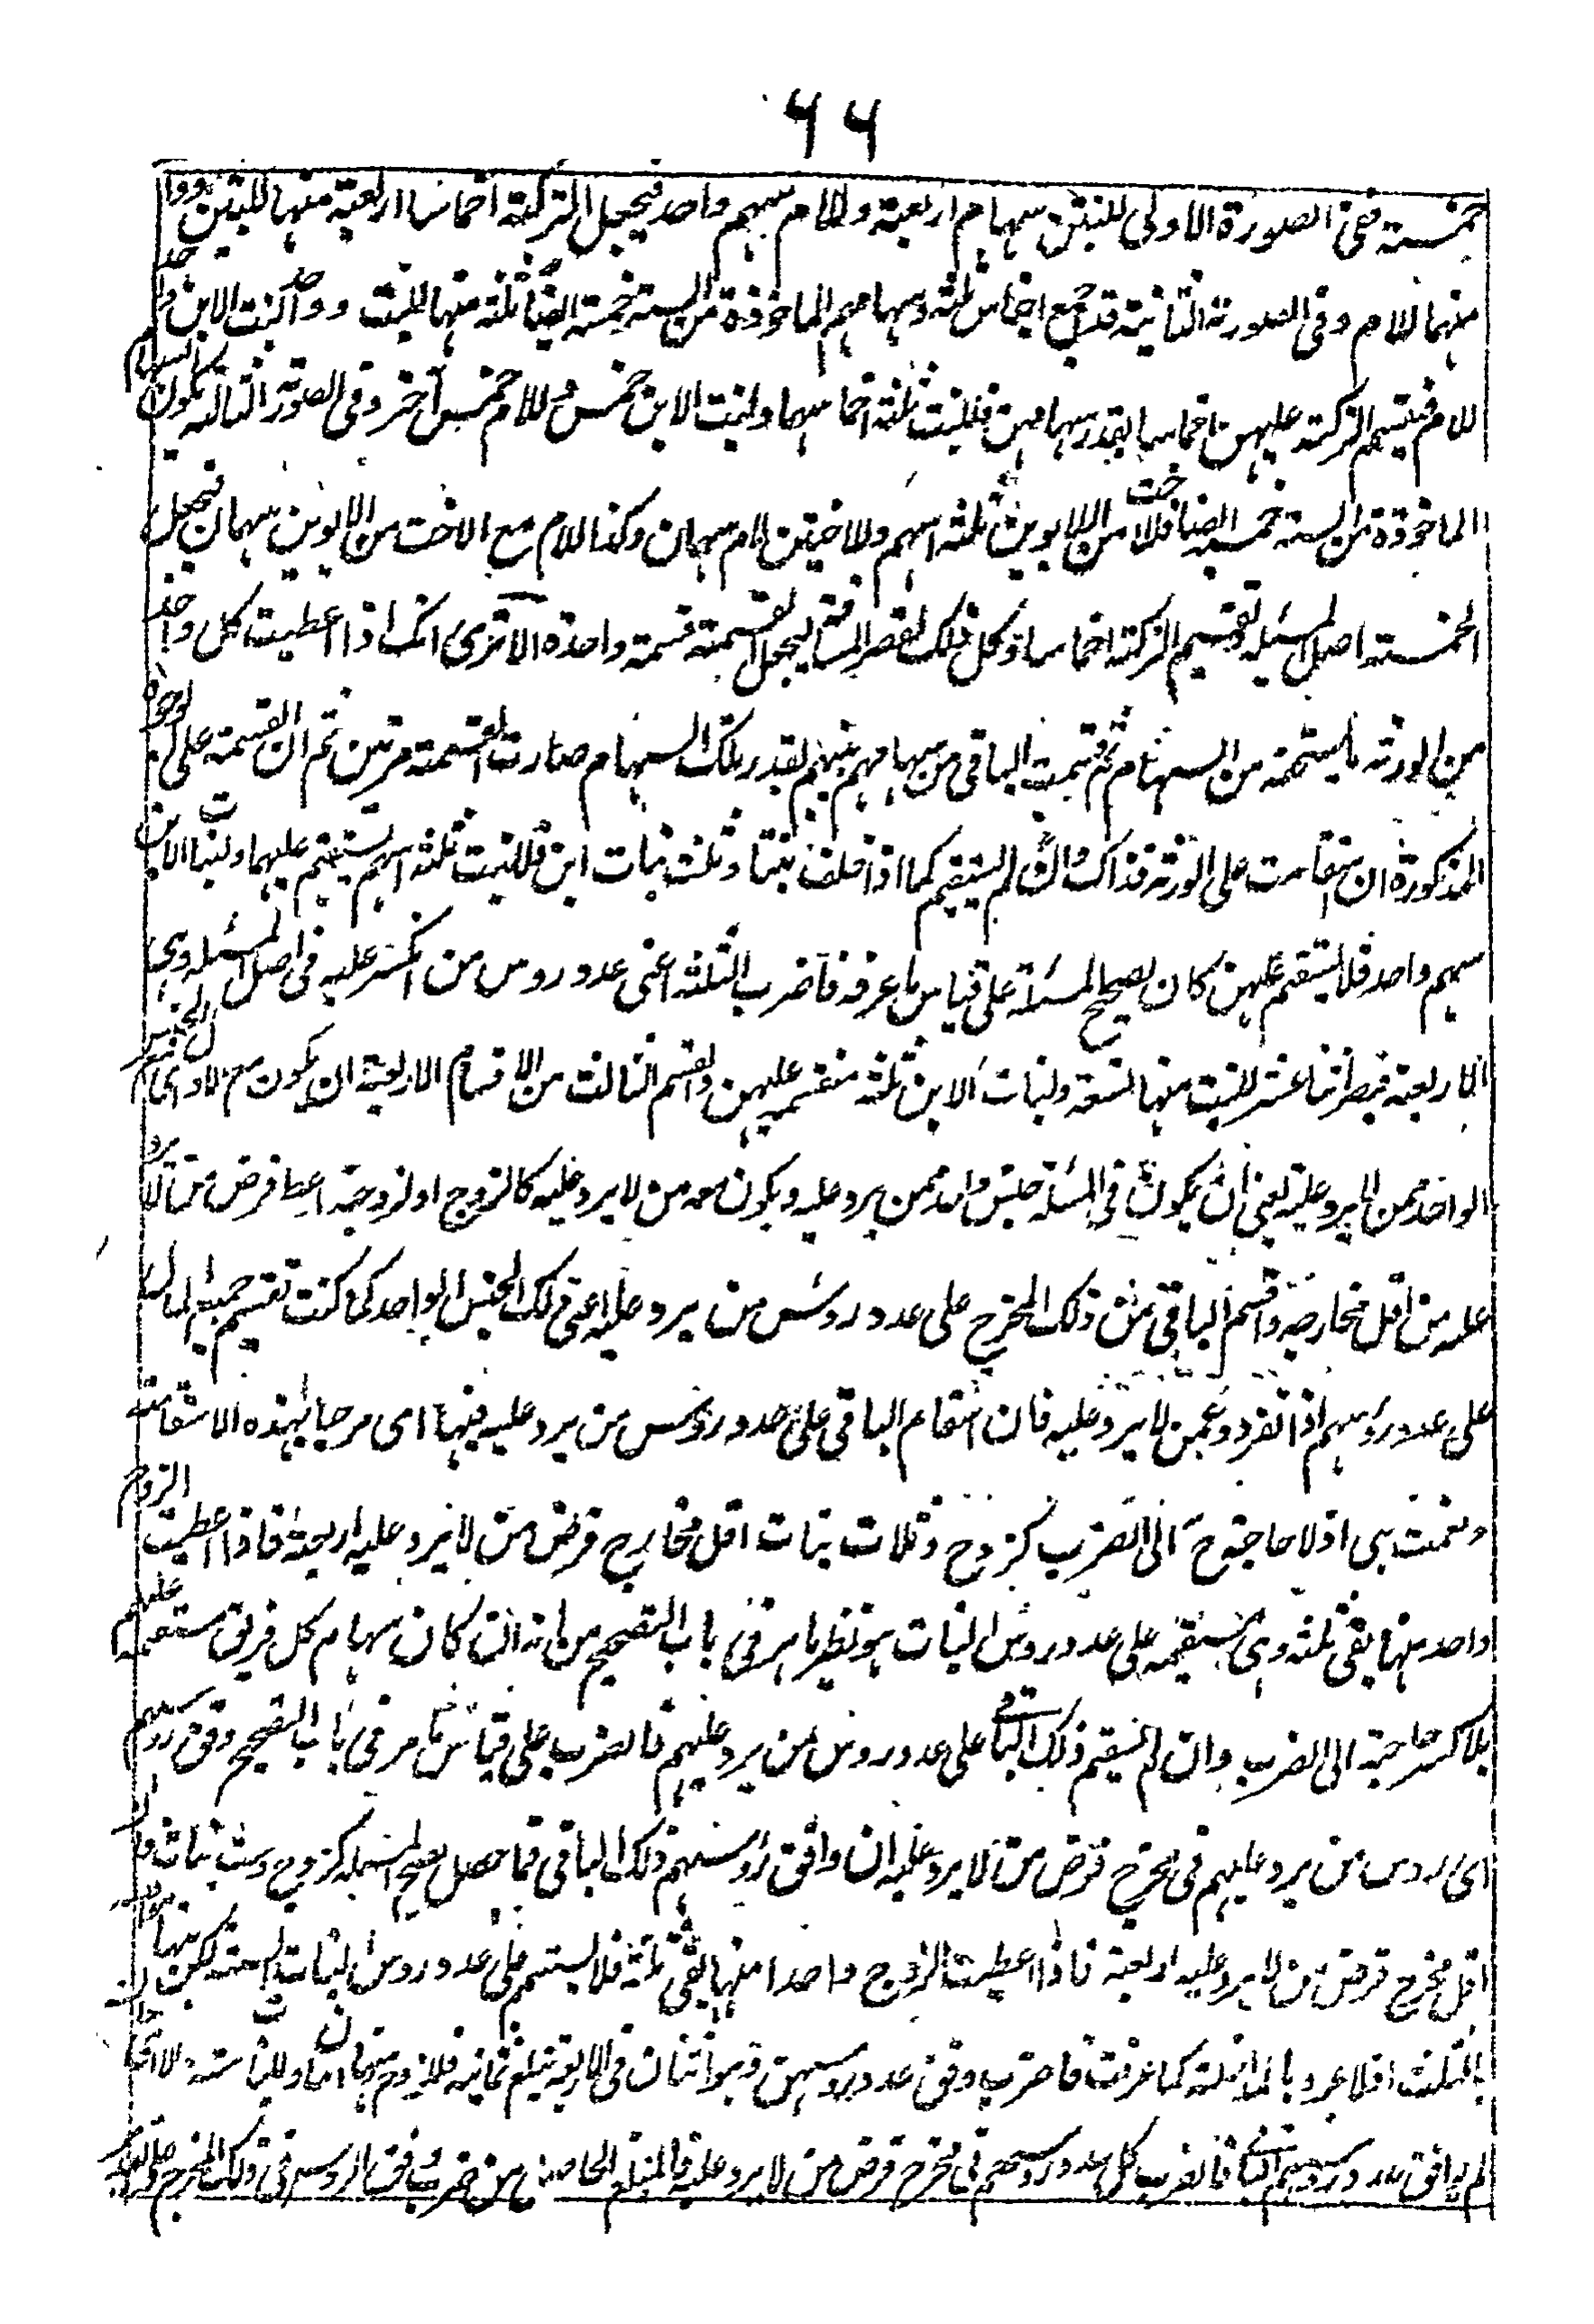 ٦٦
خمسة ففى الصورة الاولى للبنتين سهام اربعة وللام سهم واحد فيجعل التركة اخماسا اربعة منها للبنتين وواحد
منها للام وفى الصورة الثانية قد اجتمع ثلثة وسهامهم الماخوذة من الستة خمسة ايضا ثلثة منها للبنت وواحد لبنت الابن وواحد
للام فيقسم التركة عليهن اخماسا بقدر سهامهن فللبنت ثلثة اخماسها ولبنت الابن خمس وللام خمس آخر وفى الصورة الثالثة يكون السهام
الماخوذة من الستة خمسة ايضا فللاخت من الابوين ثلثة اسهم وللاختين لام سهمان وكذا للام مع الاخت من الابوين سهمان فيجعل
الخمسة اصل المسئلة وتقسم التركة اخماسا وكل ذلك لقصر المسافة ليجعل القسمة قسمة واحدة الا ترى انك اذا اعطيت كل واحد
من الورثة ما يستحقه من السهام ثم قسمت الباقى من سهامهم بينهم بقدر تلك السهام صارت القسمة مرتين ثم ان القسمة على الوجوه
المذكورة ان استقامت على الورثة فذاك وان لم يستقم كما اذا خلف بنتا وثلث بنات ابن فللبنت ثلثة اسهم يستقيم عليها ولبنات الابن
سهم واحد فلا يستقيم عليهن كان تصحيح المسئلة على قياس ما عرفه فاضرب الثلثة اعنى عدد روس من انكسر عليه فى اصل المسئلة وهى
الاربعة فيصير اثنا عشر للبنت منها تسعة ولبنات الابن ثلثة منقسمة عليهن والقسم الثالث من الاقسام الاربعة ان يكون مع الاول اى الجنس
الواحد ممن يرد عليه يعنى ان يكون فى المسئلة جنس واحد ممن يرد عليه ويكون معه من لا يرد عليه كالزوج او الزوجة اعط فرض من لا يرد
عليه من اقل مخارجه واقسم الباقى من ذلك المخرج على عدد روس من يرد عليه اعنى ذلك الجنس الواحد كما كنت تقسيم جميع المال
على عدد روسهم اذا انفردوا عمن لا يرد عليه فان استقام الباقى على عدد روس من يرد عليه فبها اى مرحبا بهذه الاستقامة
ونعمت هى اذ لا حاجة ح الى الضرب كزوج وثلاث بنات اقل مخارج فرض من لا يرد عليه اربعة فاذا اعطيت الزوج
واحد منها بقى ثلثة وهى مستقيمة على عدد روس البنات هو نظير ما مر فى باب التصحيح من انه ان كان سهام كل فريق مستقيمة عليهم
بلا كسر حاجة الى الضرب وان لم يستقم ذلك الباقى على عدد روس من يرد عليهم فاضرب على قياس ما مر فى باب التصحيح وفق روسهم
اى روس من يرد عليهم فى مخرج فرض من لا يرد عليه ان وافق روسهم ذلك الباقى فما حصل تصح المسئلة كزوج وست بنات
اقل مخرج فرض من لا يرد عليه اربعة فاذا اعطيت الزوج واحدا منها بقى ثلثة فلا يستقيم على عدد روس البنات الستة لكن بينها موافقة
بالثلث كما عرفت فاضرب وفق عدد روسهن وهو اثنان فى الاربعة يبلغ ثمانية فللزوج منها اثنان وللبنات ستة
لم يوافق عدد روسهم الباقى فاضرب كل عدد روسهم فى مخرج فرض من لا يرد عليه فالمبلغ الحاصل من ضرب وفق الروس فى ذلك المخرج